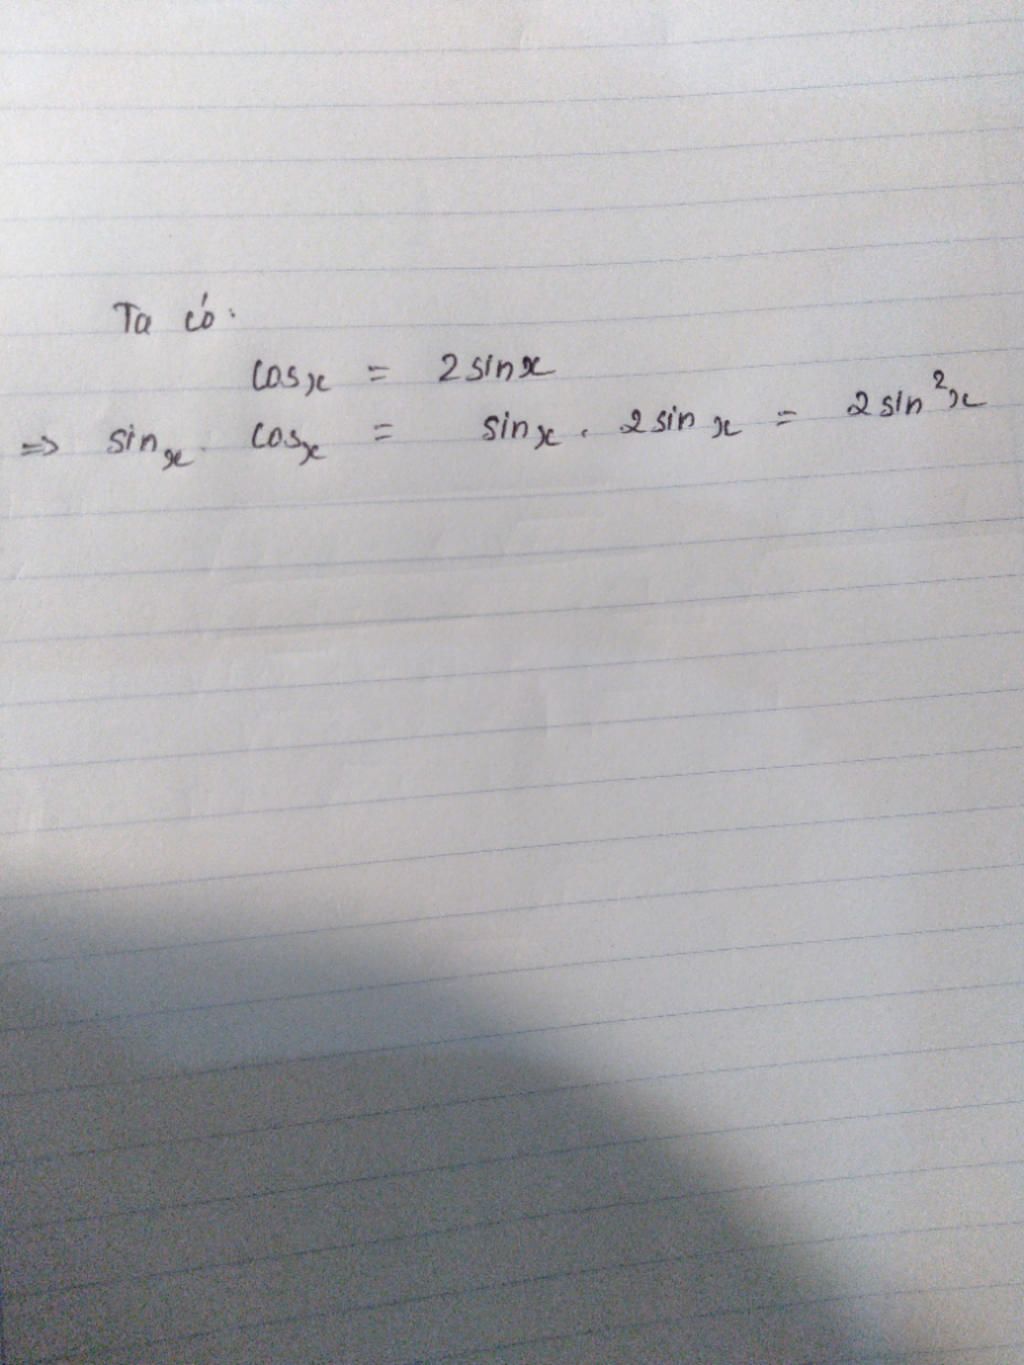 Ta có:
cosx = 2sinx
=> sinx. cosx = sinx. 2sinx = 2sin²x